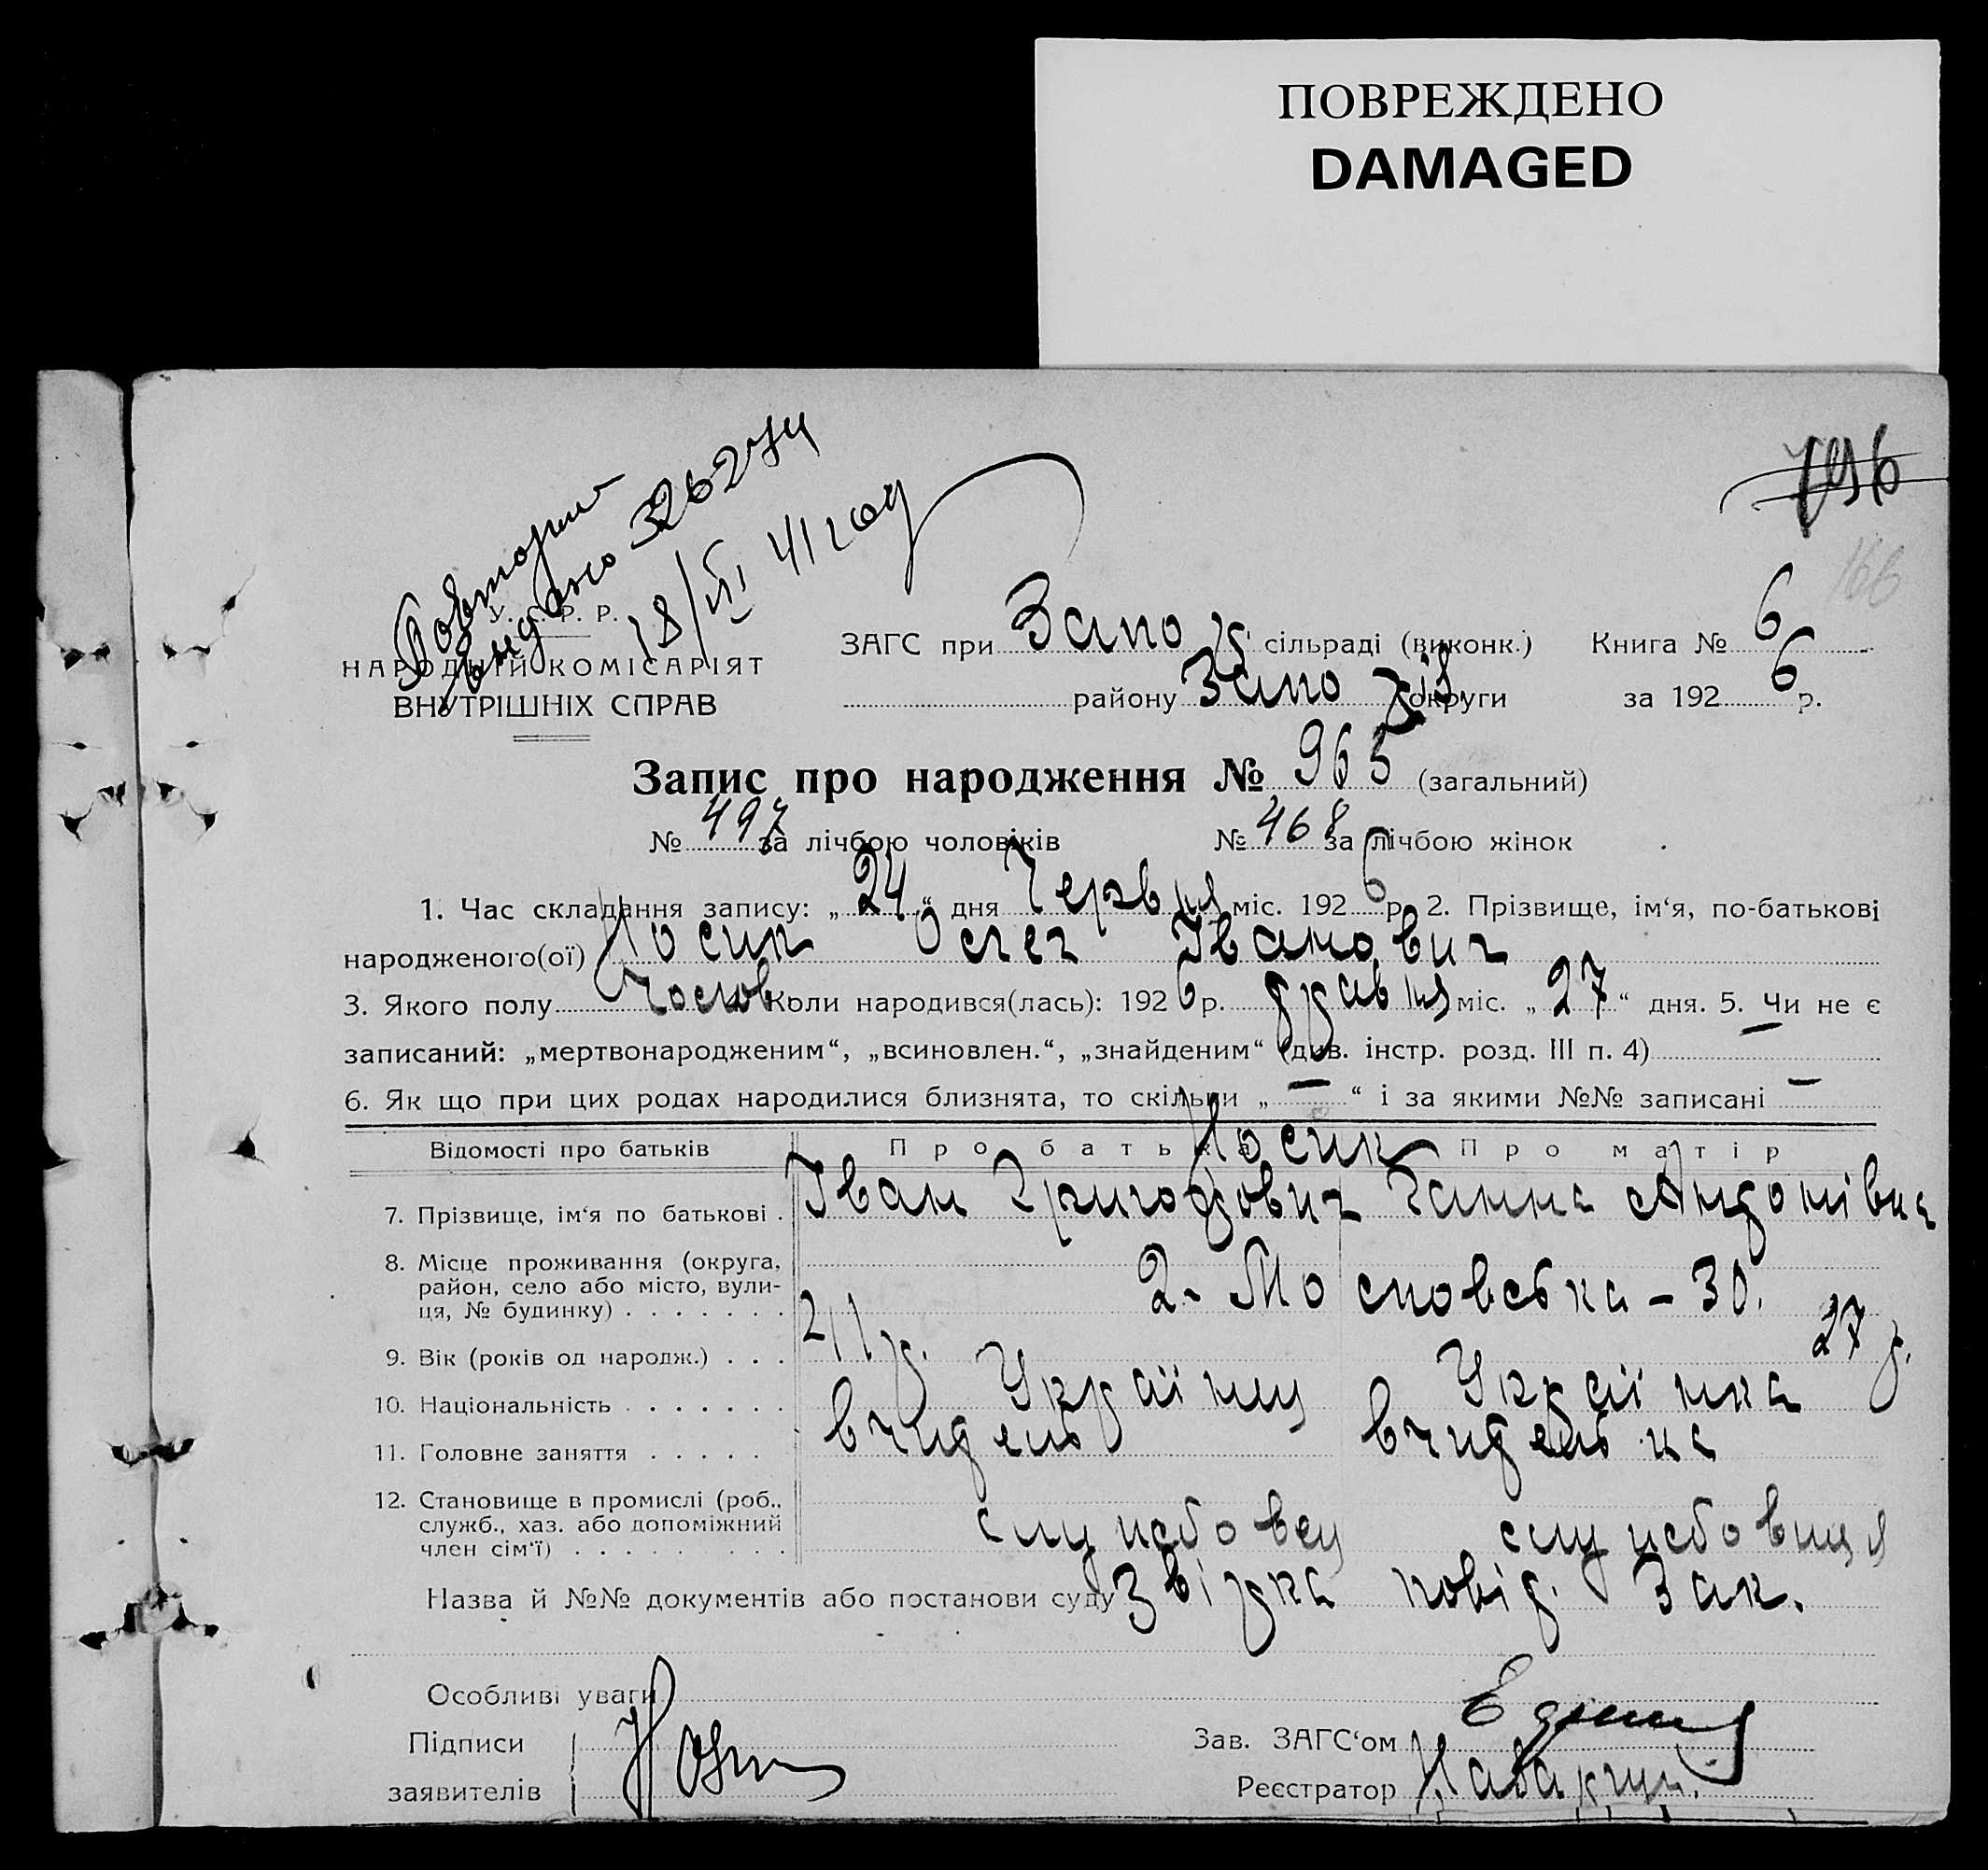 ПОВРЕЖДЕНО
DAMAGED
796
166
Повторни
Видано 326274
18/III 41 год
У. С. Р. Р.
НАРОДНІЙ КОМІСАРІЯТ
ВНУТРІШНІХ СПРАВ
ЗАГС при Запо сільраді (виконк.) Книга № 6
району Запо округи за 192 6 р.
Запис про народження № 965 (загальний)
№ 497 за лічбою чоловіків № 468 за лічбою жінок
1. Час складання запису: „24“ дня Червня міс. 192 6 р. 2. Прізвище, ім‘я, по-батькові
народженого(ої) Носик Олег Іванович
3. Якого полу чолов. 4. Коли народився(лась): 192 6 р. травня міс. „27“ дня. 5. Чи не є
записаний: „мертвонародженим“, „всиновлен.“, „знайденим“ (див. інстр. розд. III п. 4) —
6. Як що при цих родах народилися близнята, то скільки „—“ і за якими №№ записані —
Відомості про батьків Про батька Про матір
Носик
7. Прізвище, ім‘я по батькові . Іван Григорович Ганна Андронівна
8. Місце проживання (округа,
район, село або місто, вули-
ця, № будинку) . . . . . . . 2-Московська - 30.
9. Вік (років од народж.) . . . р. 27 р.
10. Національність . . . . . . . Українец Українка
11. Головне заняття . . . . . вчитель вчителька
12. Становище в промислі (роб.,
служб., хаз. або допоміжний
член сім‘ї) . . . . . . . . . службовец службовиця
Назва й №№ документів або постанови суду Звірка повід. Зак.
Особливі уваги
Підписи
заявителів
Зав. ЗАГС‘ом
Реєстратор